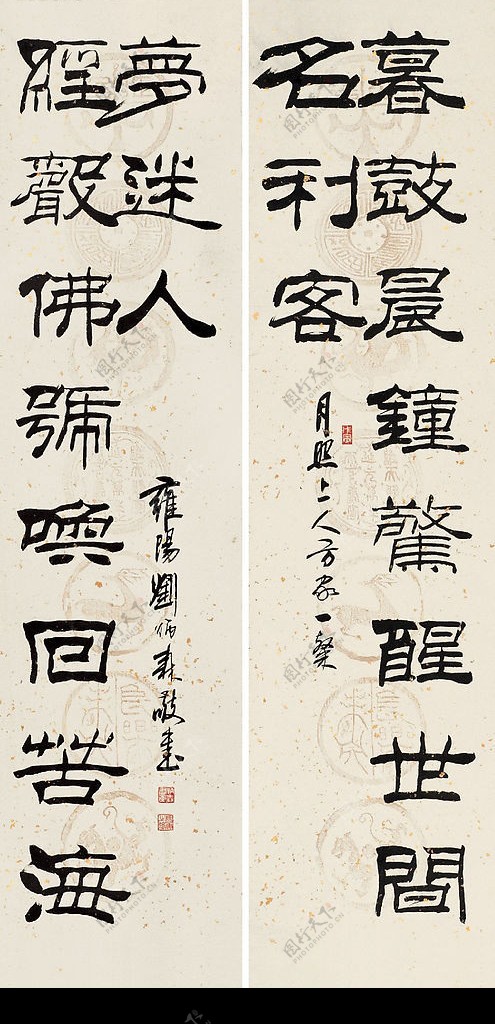 暮鼓晨鐘驚醒世間
名利客
月照上人方家一粲
經聲佛號喚回苦海
夢迷人
雍陽劉炳森敬書
图行天下
PHOTOPHOTO.CN